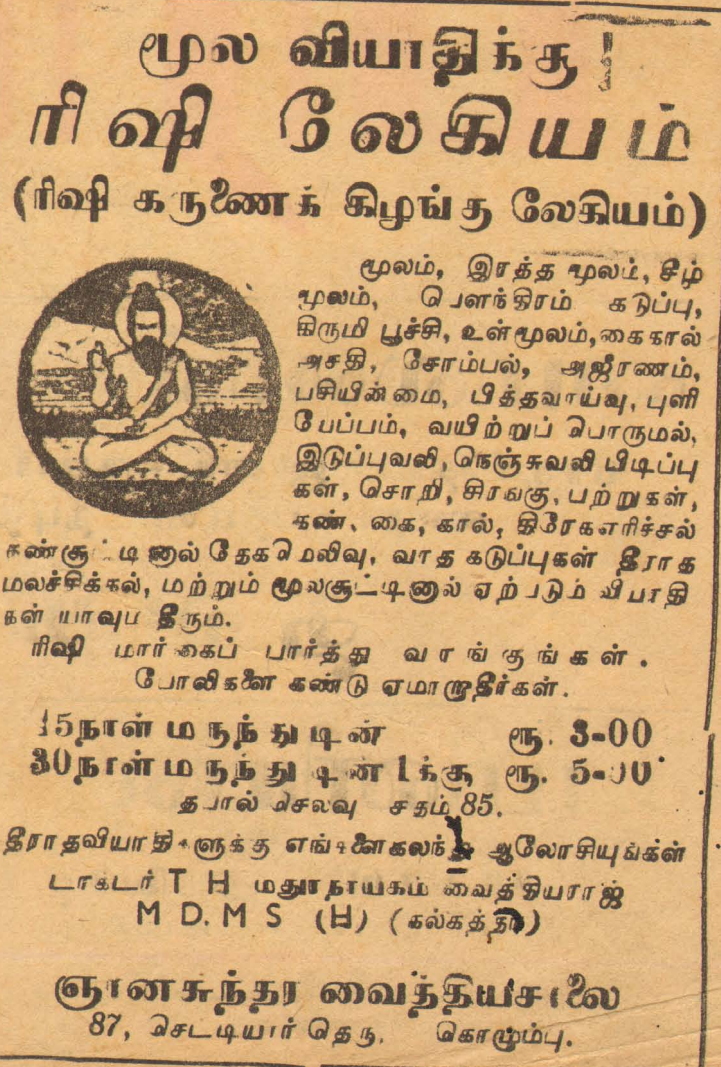 மூல வியாதிக்கு!
ரிஷி லேகியம்
(ரிஷி கருணைக் கிழங்கு லேகியம்)
மூலம், இரத்த மூலம், சீழ்
மூலம், பௌந்திரம் கடுப்பு,
கிருமி பூச்சி, உள்மூலம், கைகால்
அசதி, சோம்பல், அஜீரணம்,
பசியின்மை, பித்தவாய்வு, புளி
யேப்பம், வயிற்றுப் பொருமல்,
இடுப்புவலி, நெஞ்சுவலி பிடிப்பு
கள், சொறி, சிரங்கு, பற்றுகள்,
கண், கை, கால், திரேகஎரிச்சல்
கண்சூட்டினால் தேகமெலிவு, வாத கடுப்புகள் தீராத
மலச்சிக்கல், மற்றும் மூலசூட்டினால் ஏற்படும் வியாதி
கள் யாவும் தீரும்.
ரிஷி மார்கைப் பார்த்து வாங்குங்கள்.
போலிகளை கண்டு ஏமாறாதீர்கள்.
15நாள் மருந்து டின் ரூ. 3-00
30நாள் மருந்து டின் 1க்கு ரூ. 5-00
தபால் செலவு சதம் 85.
தீராதவியாதிகளுக்கு எங்களைகலந்து ஆலோசியுங்கள்
டாக்டர் T H மதுரநாயகம் வைத்தியராஜ்
M D. M S (H) (கல்கத்தா)
ஞானசுந்தர வைத்தியசாலை
87, செட்டியார் தெரு, கொழும்பு.